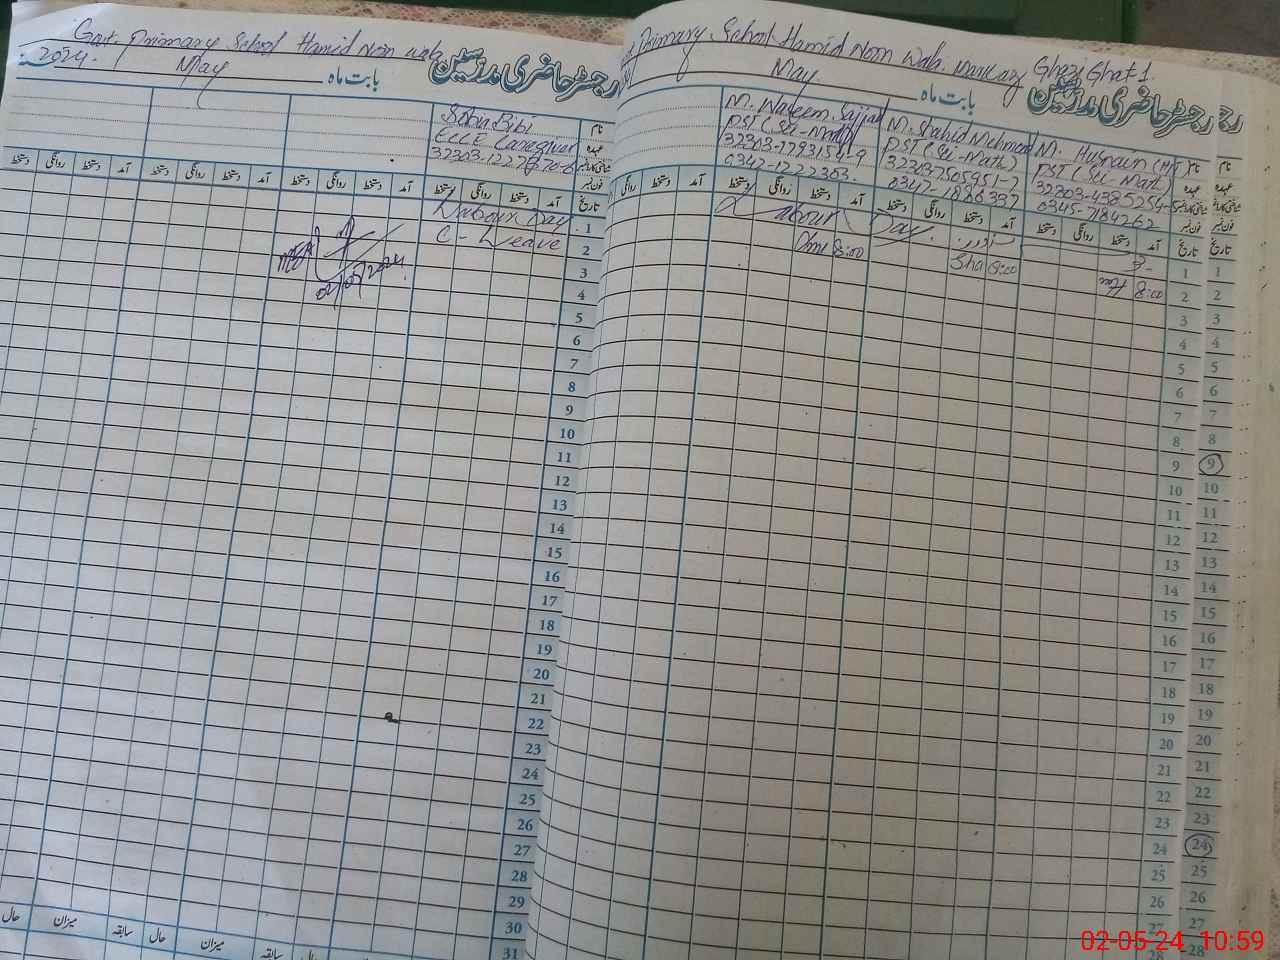 Govt. Primary School Hamid Noon wala
2024.
May
بابت ماہ
رجسٹر حاضری مدرسین
نام
عہدہ
شناختی کارڈ نمبر
فون نمبر
تاریخ
Saba Bibi
ECCE Caregiver
آمد دستخط روانگی دستخط
Labour Day
C - Leave
02/05/2024
1
2
3
4
5
6
7
8
9
10
11
12
13
14
15
16
17
18
19
20
21
22
23
24
25
26
27
28
29
30
31
میزان سابقہ حال میزان سابقہ حال
Primary School Hamid Noon wala Markaz Ghazi Ghat 1.
May
بابت ماہ
رجسٹر حاضری مدرسین
نام
عہدہ
شناختی کارڈ نمبر
فون نمبر
تاریخ
M. Husnain (HT)
PST (Sci-Math)
32303-4385254-5
0345-7184262
M. Shahid Mehmood
PST (Sci-Math)
32303-7505951-7
0347-1886337
M. Waseem Sajjad
PST (Sci-Math)
32303-1793154-9
0342-1222303
آمد دستخط روانگی دستخط
Labour Day.
8:00
Sha 8:00
8:00
1
2
3
4
5
6
7
8
9
10
11
12
13
14
15
16
17
18
19
20
21
22
23
24
25
26
27
28
1
2
3
4
5
6
7
8
9
10
11
12
13
14
15
16
17
18
19
20
21
22
23
24
25
26
27
28
02-05-24 10:59